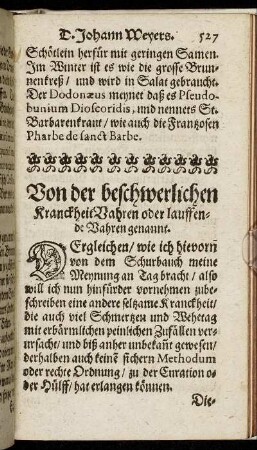 D. Johann Weyers. 527
Schötlein herfür mit geringen Samen.
Im Winter ist es wie die grosse Brun-
nenkreß/ und wird in Salat gebraucht.
Der Dodonæus meynet daß es Pseudo-
bunium Dioscoridis, und nennets St.
Barbarenkraut/ wie auch die Frantzosen
Pharbe de sanct Barbe.
Von der beschwerlichen
Kranckheit Vahren oder lauffen-
de Vahren genannt.
DErgleichen/ wie ich hievorn
von dem Schurbauch meine
Meynung an Tag bracht/ also
will ich nun hinfürder vornehmen zube-
schreiben eine andere seltzame Kranckheit/
die auch viel Schmertzen und Wehetag
mit erbärmlichen peinlichen Zufällen ver-
ursacht/ und biß anher unbekañt gewesen/
derhalben auch keinē sichern Methodum
oder rechte Ordnung/ zu der Curation o-
der Hülff/ hat erlangen können.
Die-